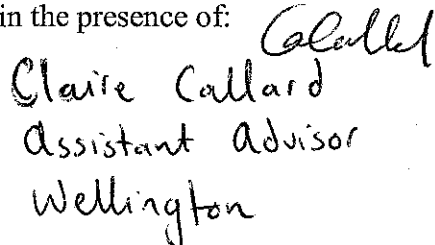 in the presence of:
Claire Callard
Assistant Advisor
Wellington